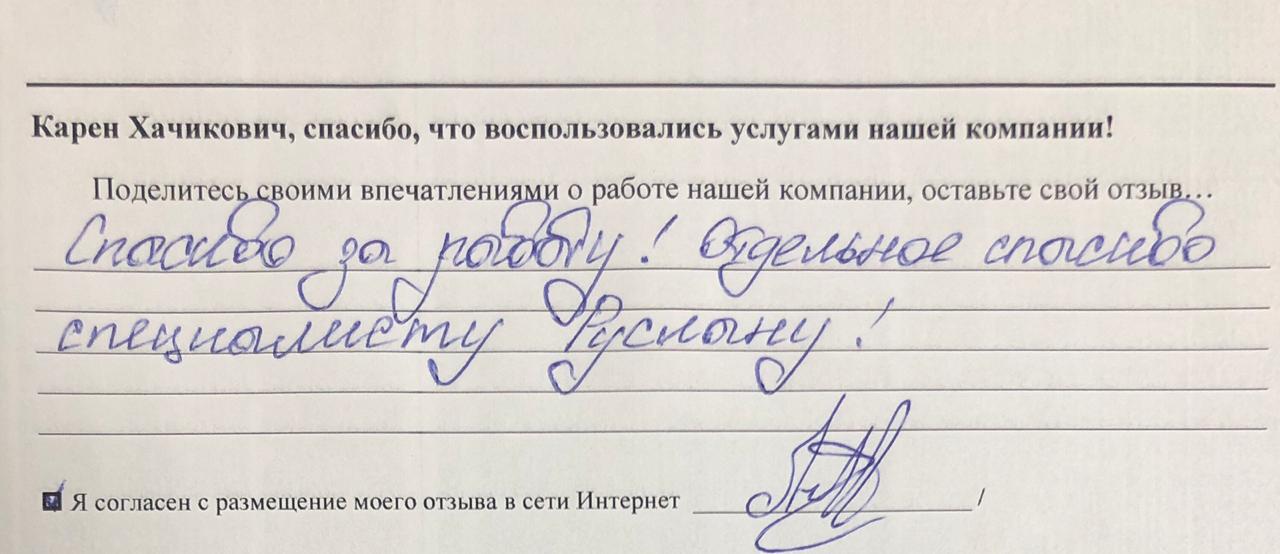 Карен Хачикович, спасибо, что воспользовались услугами нашей компании!
Поделитесь своими впечатлениями о работе нашей компании, оставьте свой отзыв…
Спасибо за работу! Отдельное спасибо
специалисту Руслану!
Я согласен с размещение моего отзыва в сети Интернет /